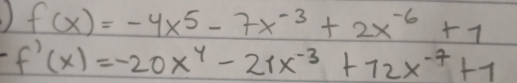 ) f(x) = -4x⁵ - 7x⁻³ + 2x⁻⁶ + 1
- f'(x) = -20x⁴ - 21x⁻³ + 12x⁻⁷ + 1